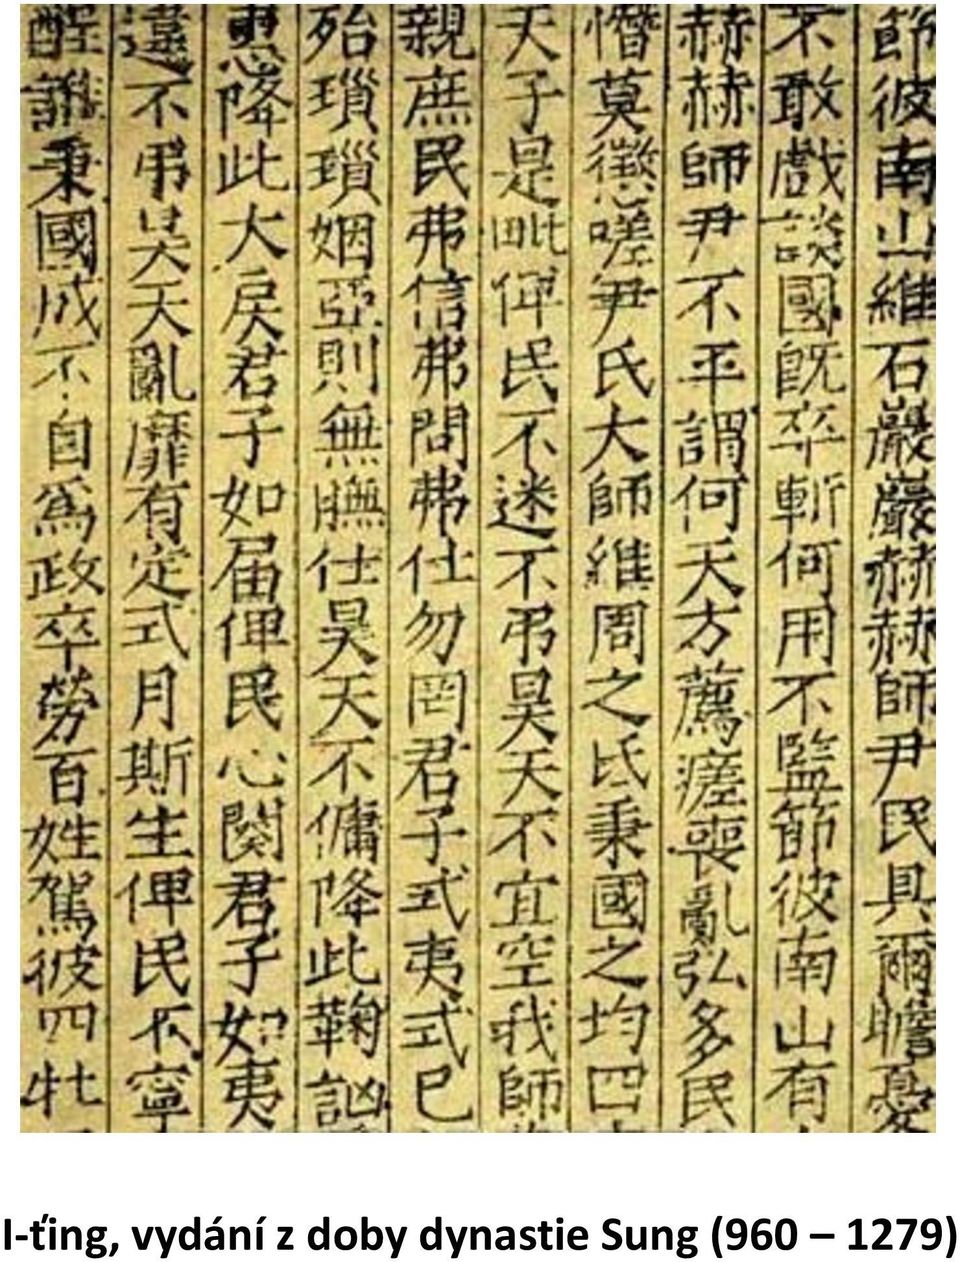 節彼南山維石巖巖赫赫師尹民具爾瞻憂
不敢戲談國旣卒斬何用不監節彼南山有
赫赫師尹不平謂何天方薦瘥喪亂弘多民
憯莫懲嗟尹氏大師維周之氐秉國之均四
天子是毗俾民不迷不弔昊天不宜空我師
親庶民弗信弗問弗仕勿罔君子式夷式已
殆瑣瑣姻亞則無膴仕昊天不傭降此鞫訩
惠降此大戾君子如届俾民心闋君子如夷
違不弔昊天亂靡有定式月斯生俾民不寧
酲誰秉國成不自為政卒勞百姓駕彼四牡
I-ťing, vydání z doby dynastie Sung (960 – 1279)